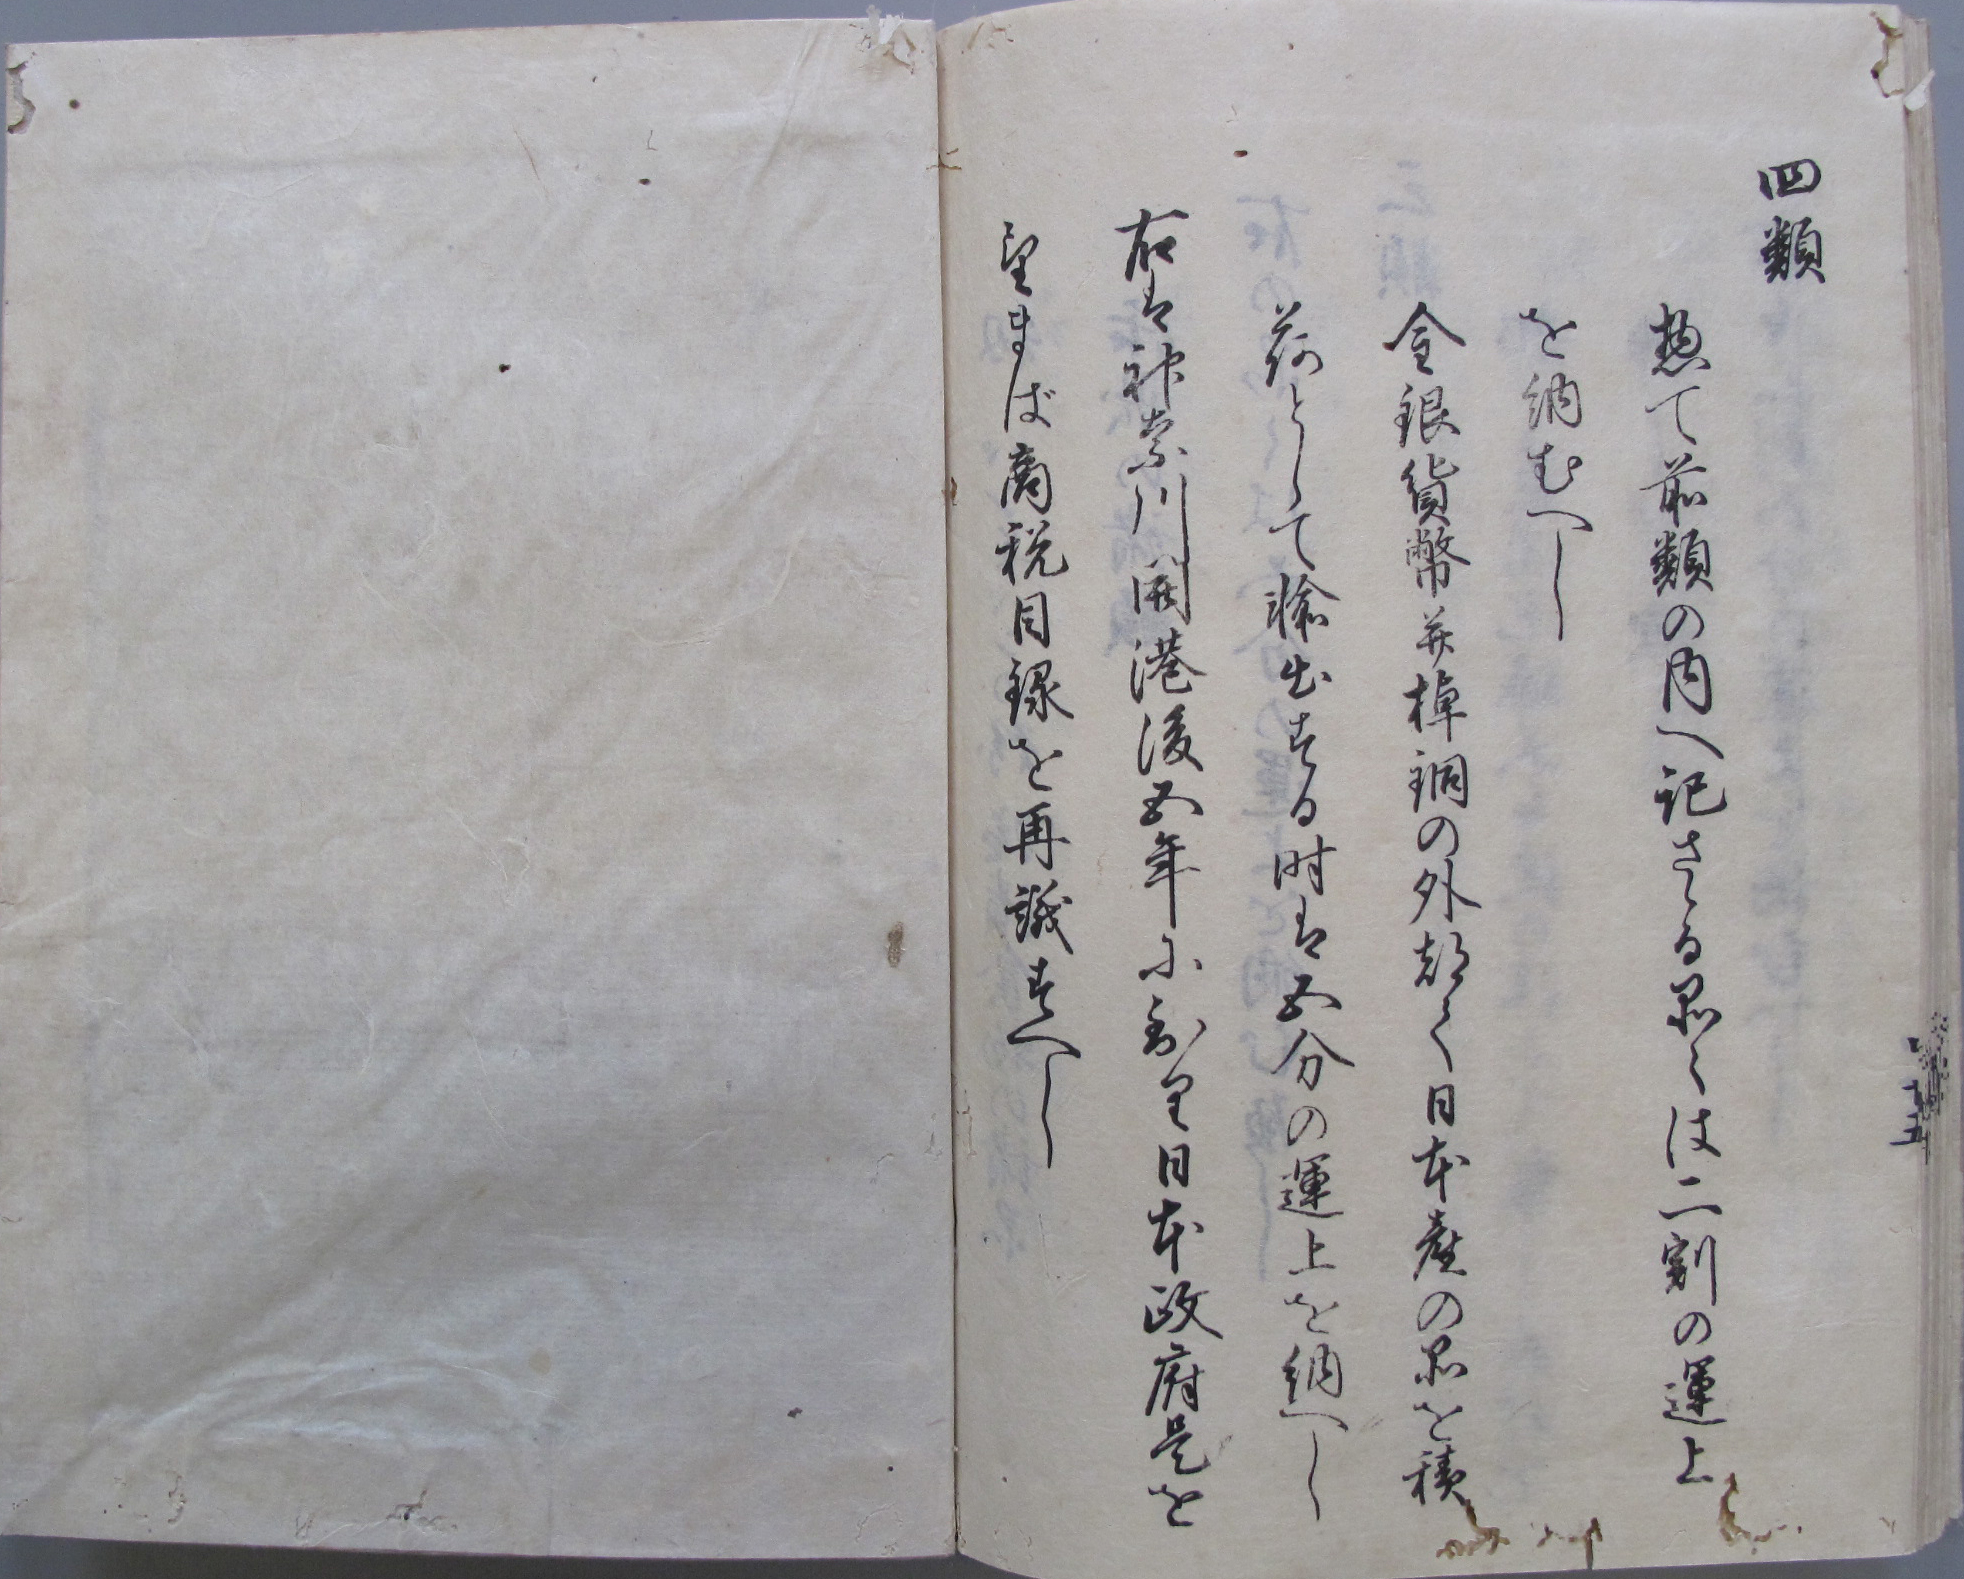 四類
惣て前類の内へ記さゝる品々は二割の運上
を納むへし
金銀貨幣并棹銅の外都て日本産の品を積
荷として輸出する時は五分の運上を納へし
右は神奈川開港後五年に至り日本政府是を
望まば商税目録を再議すへし